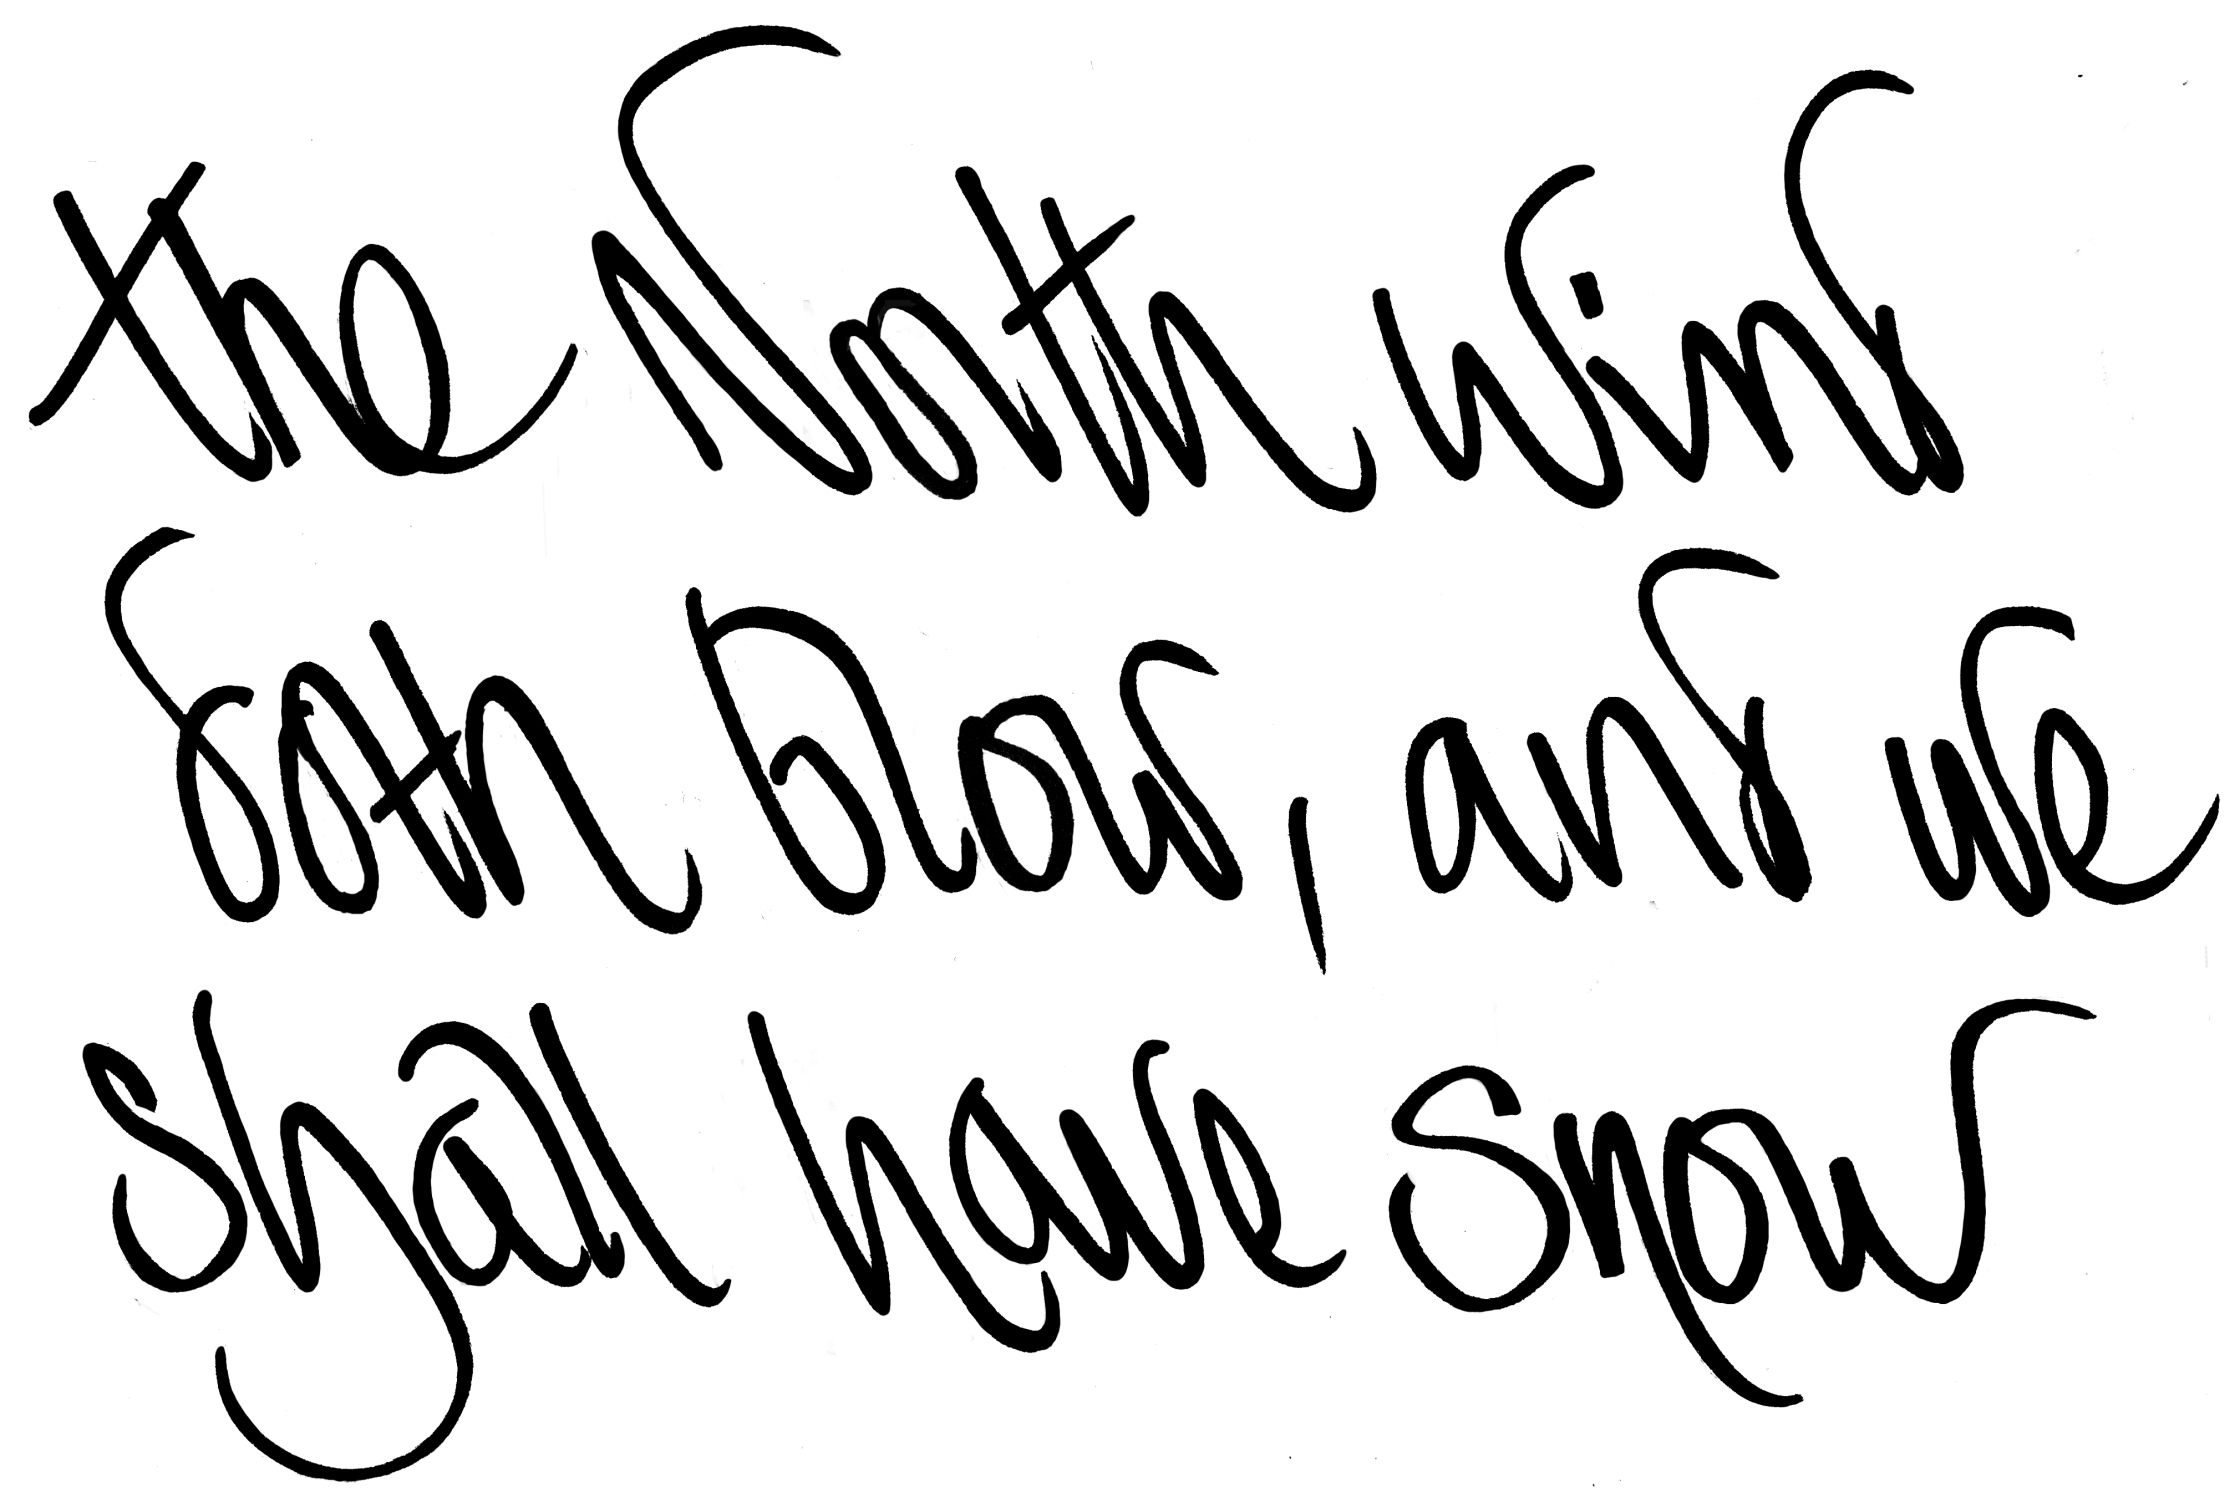 the North wind
doth blow, and we
shall have snow